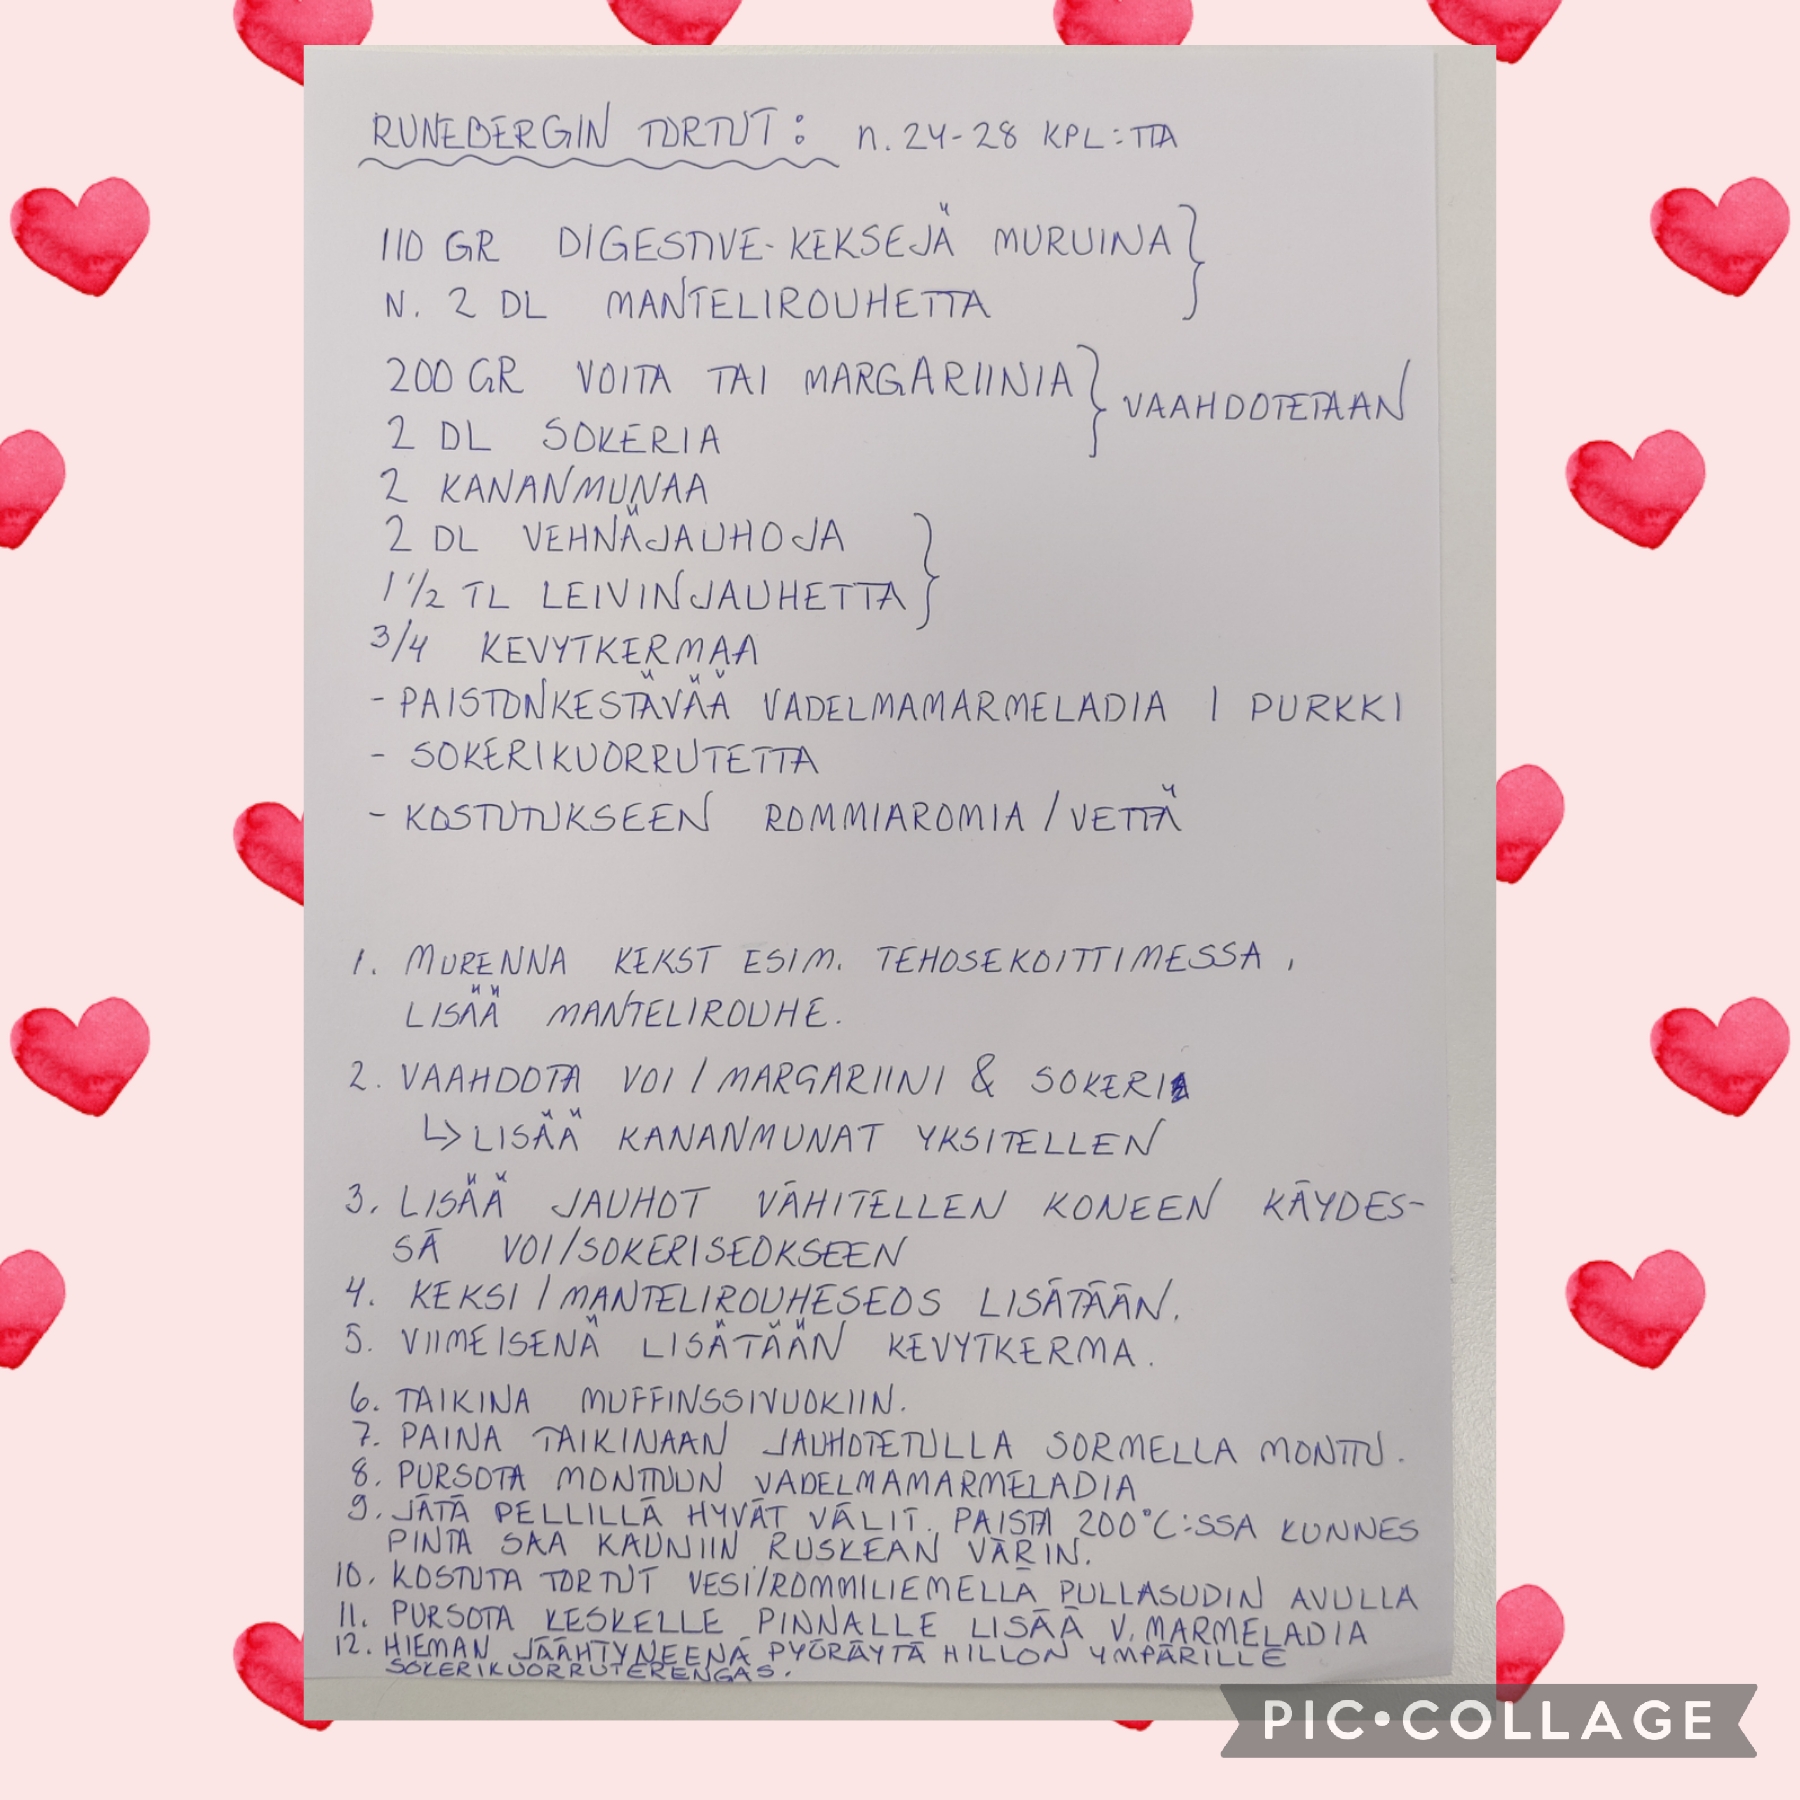 RUNEBERGIN TORTUT: n. 24-28 KPL:TTA
110 GR DIGESTIVE-KEKSEJÄ MURUINA
N. 2 DL MANTELIROUHETTA
200 GR VOITA TAI MARGARIINIA
VAAHDOTETAAN
2 DL SOKERIA
2 KANANMUNAA
2 DL VEHNÄJAUHOJA
1 1/2 TL LEIVINJAUHETTA
3/4 KEVYTKERMAA
- PAISTONKESTÄVÄÄ VADELMAMARMELADIA 1 PURKKI
- SOKERIKUORRUTETTA
- KOSTUTUKSEEN ROMMIAROMIA / VETTÄ
1. MURENNA KEKSIT ESIM. TEHOSEKOITTIMESSA,
LISÄÄ MANTELIROUHE.
2. VAAHDOTA VOI / MARGARIINI & SOKERI
↳ LISÄÄ KANANMUNAT YKSITELLEN
3. LISÄÄ JAUHOT VÄHITELLEN KONEEN KÄYDES-
SÄ VOI/SOKERISEOKSEEN
4. KEKSI / MANTELIROUHESEOS LISÄTÄÄN.
5. VIIMEISENÄ LISÄTÄÄN KEVYTKERMA.
6. TAIKINA MUFFINSSIVUOKIIN.
7. PAINA TAIKINAAN JAUHOTETULLA SORMELLA MONTTU.
8. PURSOTA MONTTUUN VADELMAMARMELADIA
9. JÄTÄ PELLILLÄ HYVÄT VÄLIT. PAISTA 200°C:SSA KUNNES
PINTA SAA KAUNIIN RUSKEAN VÄRIN.
10. KOSTUTA TORTUT VESI/ROMMILIEMELLÄ PULLASUDIN AVULLA
11. PURSOTA KESKELLE PINNALLE LISÄÄ V. MARMELADIA
12. HIEMAN JÄÄHTYNEENÄ PYÖRÄYTÄ HILLON YMPÄRILLE
SOKERIKUORRUTERENGAS.
PIC•COLLAGE